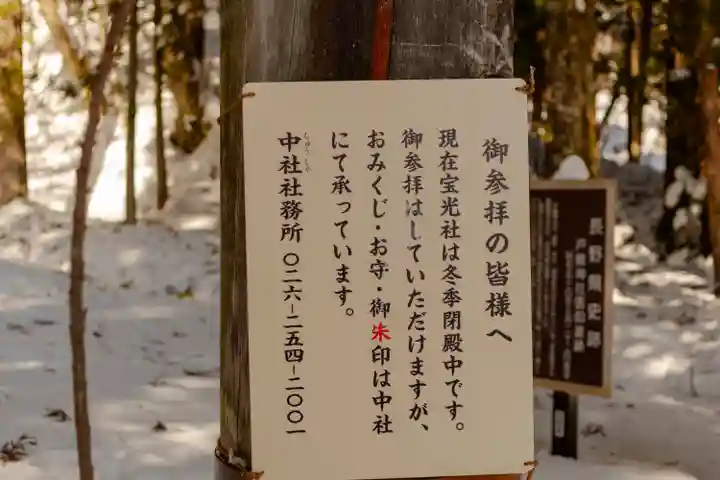 御参拝の皆様へ
現在宝光社は冬季閉殿中です。
御参拝はしていただけますが、
おみくじ・お守・御朱印は中社
にて承っています。
中社社務所 〇二六-二五四-二〇〇一
ちゅうしゃ
長野県史跡